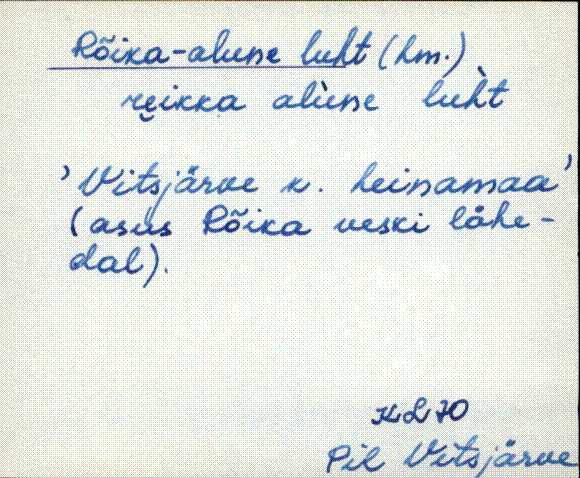 Rõika-alune luht (hm.)
rẹikka alùne luh̀t
'Vitsjärve k. heinamaa'
(asus Rõika veski lähe-
dal).
KL 70
Pil Vitsjärve